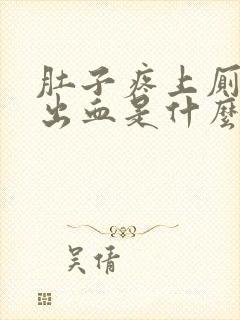 肚子疼上厕
出血是什麽
吴倩